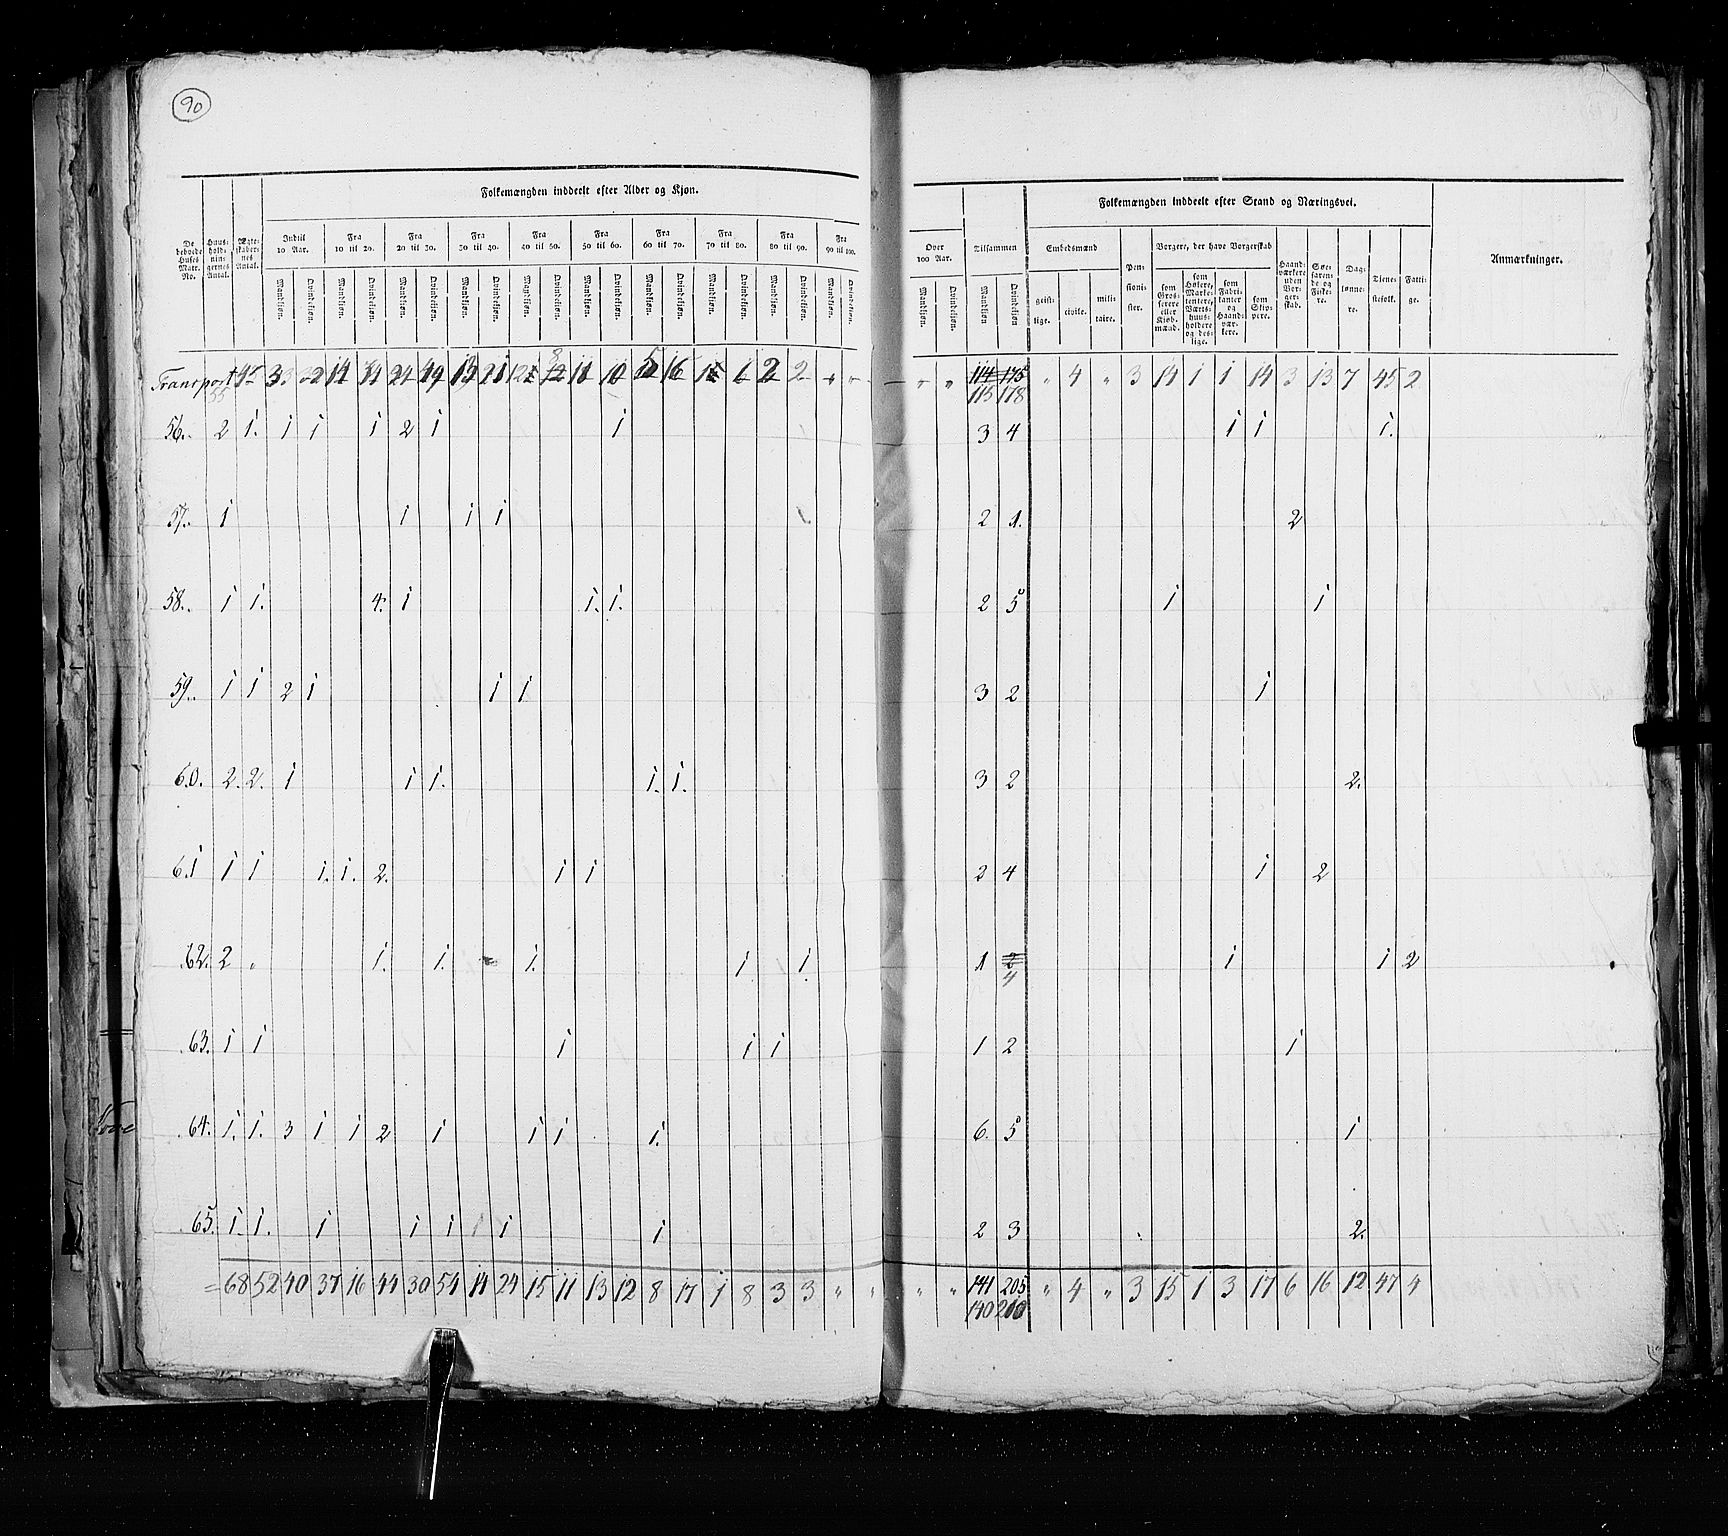 90
Folkemængden inddeelt efter Alder og Kjøn.
De beboede Huses Matr. No.
Huus-holdnin-gernes Antal.
Ægte-skaber-nes Antal.
Indtil 10 Aar.
Fra 10 til 20.
Fra 20 til 30.
Fra 30 til 40.
Fra 40 til 50.
Fra 50 til 60.
Fra 60 til 70.
Fra 70 til 80.
Fra 80 til 90.
Fra 90 til 100.
Mandkjøn. Qvindekjøn. Mandkjøn. Qvindekjøn. Mandkjøn. Qvindekjøn. Mandkjøn. Qvindekjøn. Mandkjøn. Qvindekjøn. Mandkjøn. Qvindekjøn. Mandkjøn. Qvindekjøn. Mandkjøn. Qvindekjøn. Mandkjøn. Qvindekjøn. Mandkjøn. Qvindekjøn.
Over 100 Aar.
Mandkjøn. Qvindekjøn.
Tilsammen
Mandkjøn Qvindekjøn
Folkemængden inddeelt efter Stand og Næringsvei.
Embedsmænd
geist-lige.
civile.
mili-taire.
Pen-sioni-ster.
Borgere, der have Borgerskab
som Gros-serere eller Kiøb-mænd.
som Høkere, Marke-tentere, Værts-huus-holdere og des-lige.
som Fabri-kanter og Haand-vær-kere.
som Skip-pere.
Haand-værkere uden Bor-ger-skab.
Søe-faren-de og Fiske-re.
Dag-lønne-re.
Tiene-stefolk.
Fatti-ge.
Anmærkninger.
Transport 55 33 14 24 19 8 10 16 6 2 2 " " " " 114 175 " 4 " 3 14 1 1 14 3 13 7 45 2
115 178
56. 2 1. 1 1 1 2 1 1 3 4 1 1 1.
57. 1 1 1 1 2 1. 2
58. 1 1. 4. 1 1. 1. 2 5 1 1
59. 1 1 2 1 1 1 3 2 1
60. 2. 2. 1 1 1. 1. 1. 3 2 2.
61 1 1 1. 1. 2. 1 1 2 4 1 2
62. 2 " 1. 1. 1. 1 1. 1 2 1 1 2
4
63. 1 1 1 1 1 1 2 1
64. 1. 1. 3 1 1 2 1 1 1 1. 6. 5 1
65. 1. 1. 1 1 1 1 1 2 3 2.
= 68 52 40 37 16 44 30 54 14 24 15 11 13 12 8 17 1 8 3 3 " " " " 141 205 " 4 " 3 15 1 3 17 6 16 12 47 4
140 200